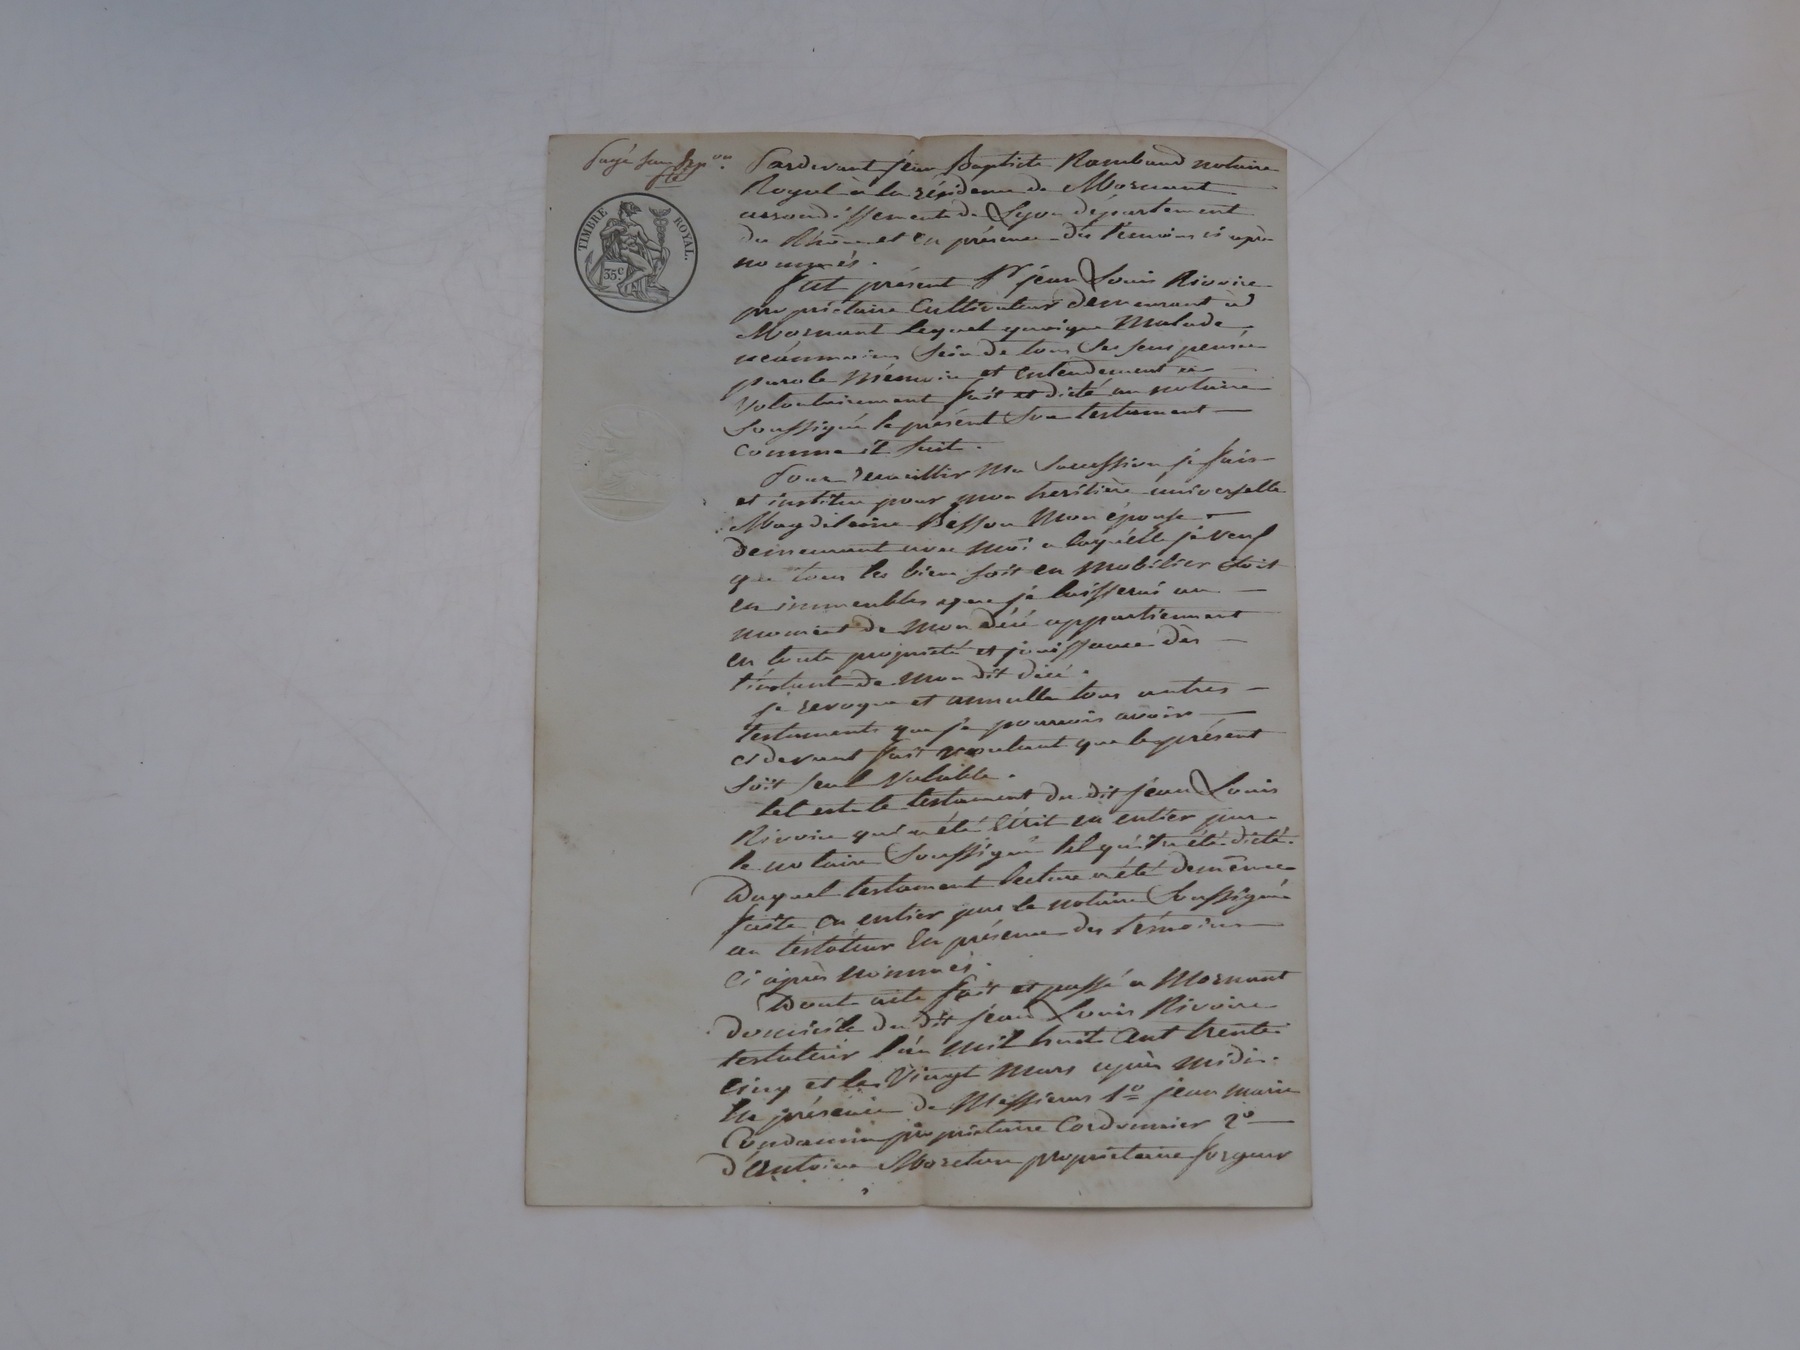 TIMBRE ROYAL.
35c
Pardevant jean Baptiste Rambaud notaire
Royal à la résidence de Mornant
arrondissement de Lyon département
du Rhône et en présence des témoins ci après
nommés.
fut présent Sr jean Louis Rivoire
propriétaire Cultivateur demeurant à
Mornant lequel quoique Malade
néanmoins sein de tous ses sens pensée
parole Mémoire et entendement a
Volontairement fait et dicté au notaire
Soussigné le présent Son testament
comme il suit.
Pour recueillir Ma Succession je fais
et institue pour mon heritière universelle
Magdeleine Besson Mon épouse
demeurant avec Moi a laquelle je veux
que tous les biens soit en Mobilier soit
en immeubles que je laisserai au
moment de Mon décè appartiennent
en toute propriété et jouissance dès
l'instant de Mon dit décè.
je revoque et annulle tous autres
testaments que je pourrois avoir
ci devant fait voulant que le présent
soit seul Valable.
tel est le testament du dit jean Louis
Rivoire qui a été Ecrit en entier par
le notaire Soussigné tel qu'il a été dicté.
Duquel testament lecture a été de même
faite en entier par le notaire Soussigné
au testateur En présence des témoins
Ci après Nommés.
Dont acte fait et passé a Mornant
domicile du dit jean Louis Rivoire
testateur l'an Mil huit Cent trente
cinq et le Vingt Mars après midi.
En présence de Messieurs 1º jean marie
Condamin propriétaire Cordonnier 2º
d'Antoine propriétaire